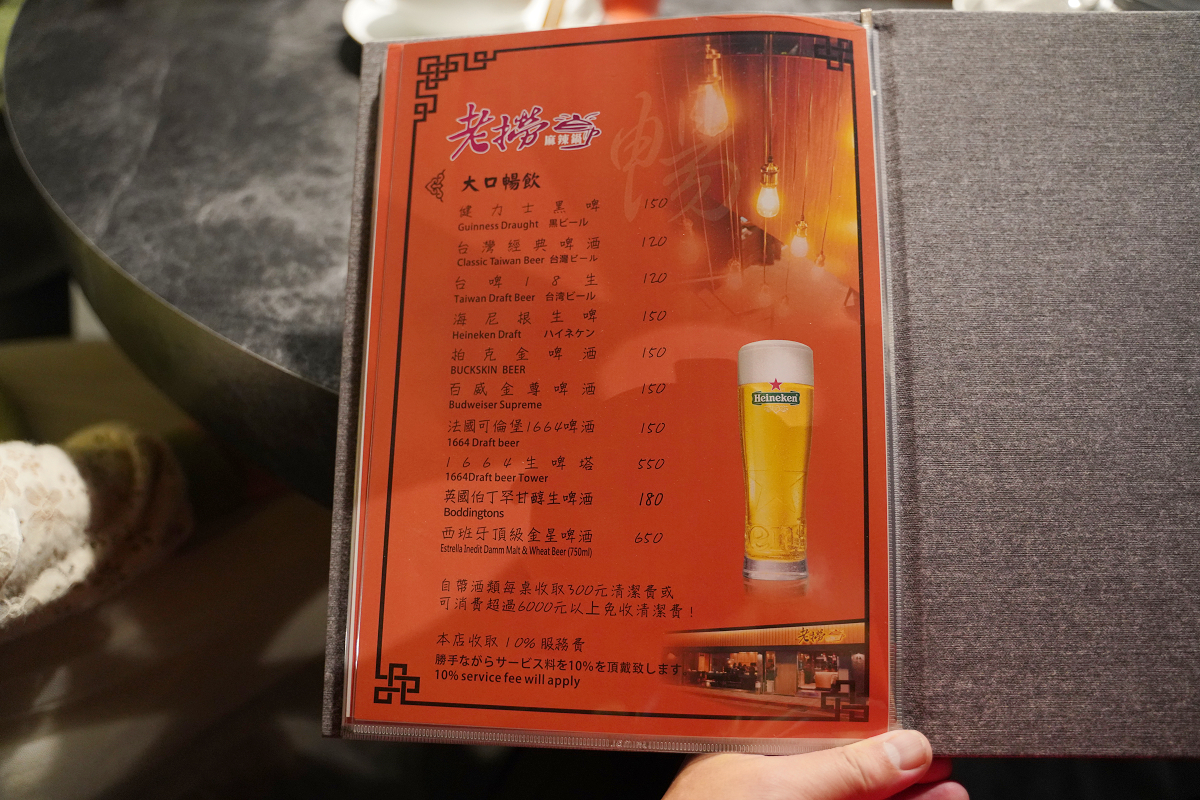 老撈
麻辣鍋
暢
大口暢飲
健力士黑啤 150
Guinness Draught 黒ビール
台灣經典啤酒 120
Classic Taiwan Beer 台灣ビール
台啤18生 120
Taiwan Draft Beer 台湾ビール
海尼根生啤 150
Heineken Draft ハイネケン
拍克金啤酒 150
BUCKSKIN BEER
百威金尊啤酒 150
Budweiser Supreme
法國可倫堡1664啤酒 150
1664 Draft beer
1664生啤塔 550
1664Draft beer Tower
英國伯丁罕甘醇生啤酒 180
Boddingtons
西班牙頂級金星啤酒 650
Estrella Inedit Damm Malt & Wheat Beer (750ml)
Heineken
自帶酒類每桌收取300元清潔費或
可消費超過6000元以上免收清潔費！
本店收取10%服務費
勝手ながらサービス料を10%を頂戴致します
10% service fee will apply
老撈